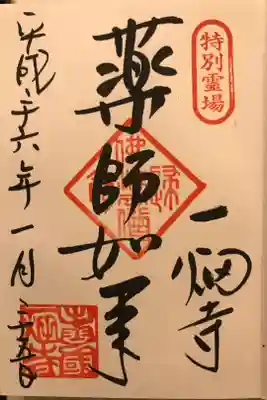 特別霊場
一畑寺
薬師如来
平成二十六年一月二十五日